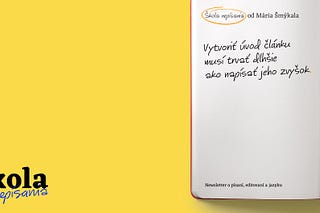 Škola nepísania od Mária Šmýkala
Vytvoriť úvod článku
musí trvať dlhšie
ako napísať jeho zvyšok.
kola
episania
Newsletter o písaní, editovaní a jazyku